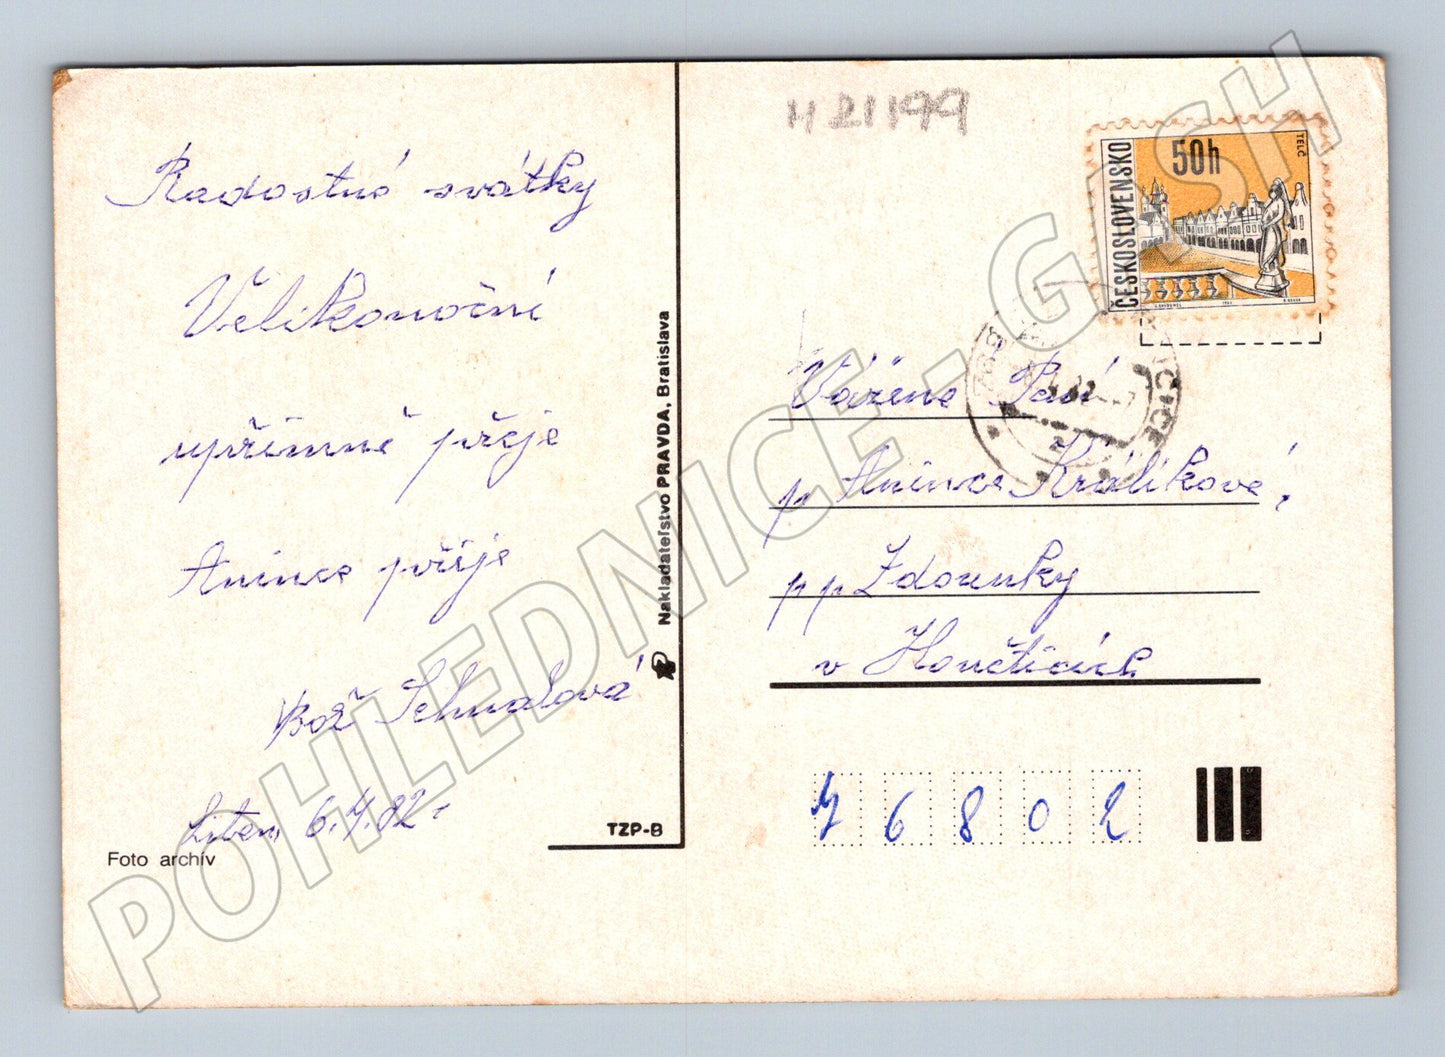 H 21199
Radostné svátky
Velikonoční
upřímně přeje
Anince přije
Bož Schnalová
6.4.82
Foto archív
TZP-B
Nakladateľstvo PRAVDA, Bratislava
ČESKOSLOVENSKO
50h
TELČ
Vážené Paní
p Anince Králikové,
pp Zdounky
v Honěticích
76802
POHLEDNICE - GASH